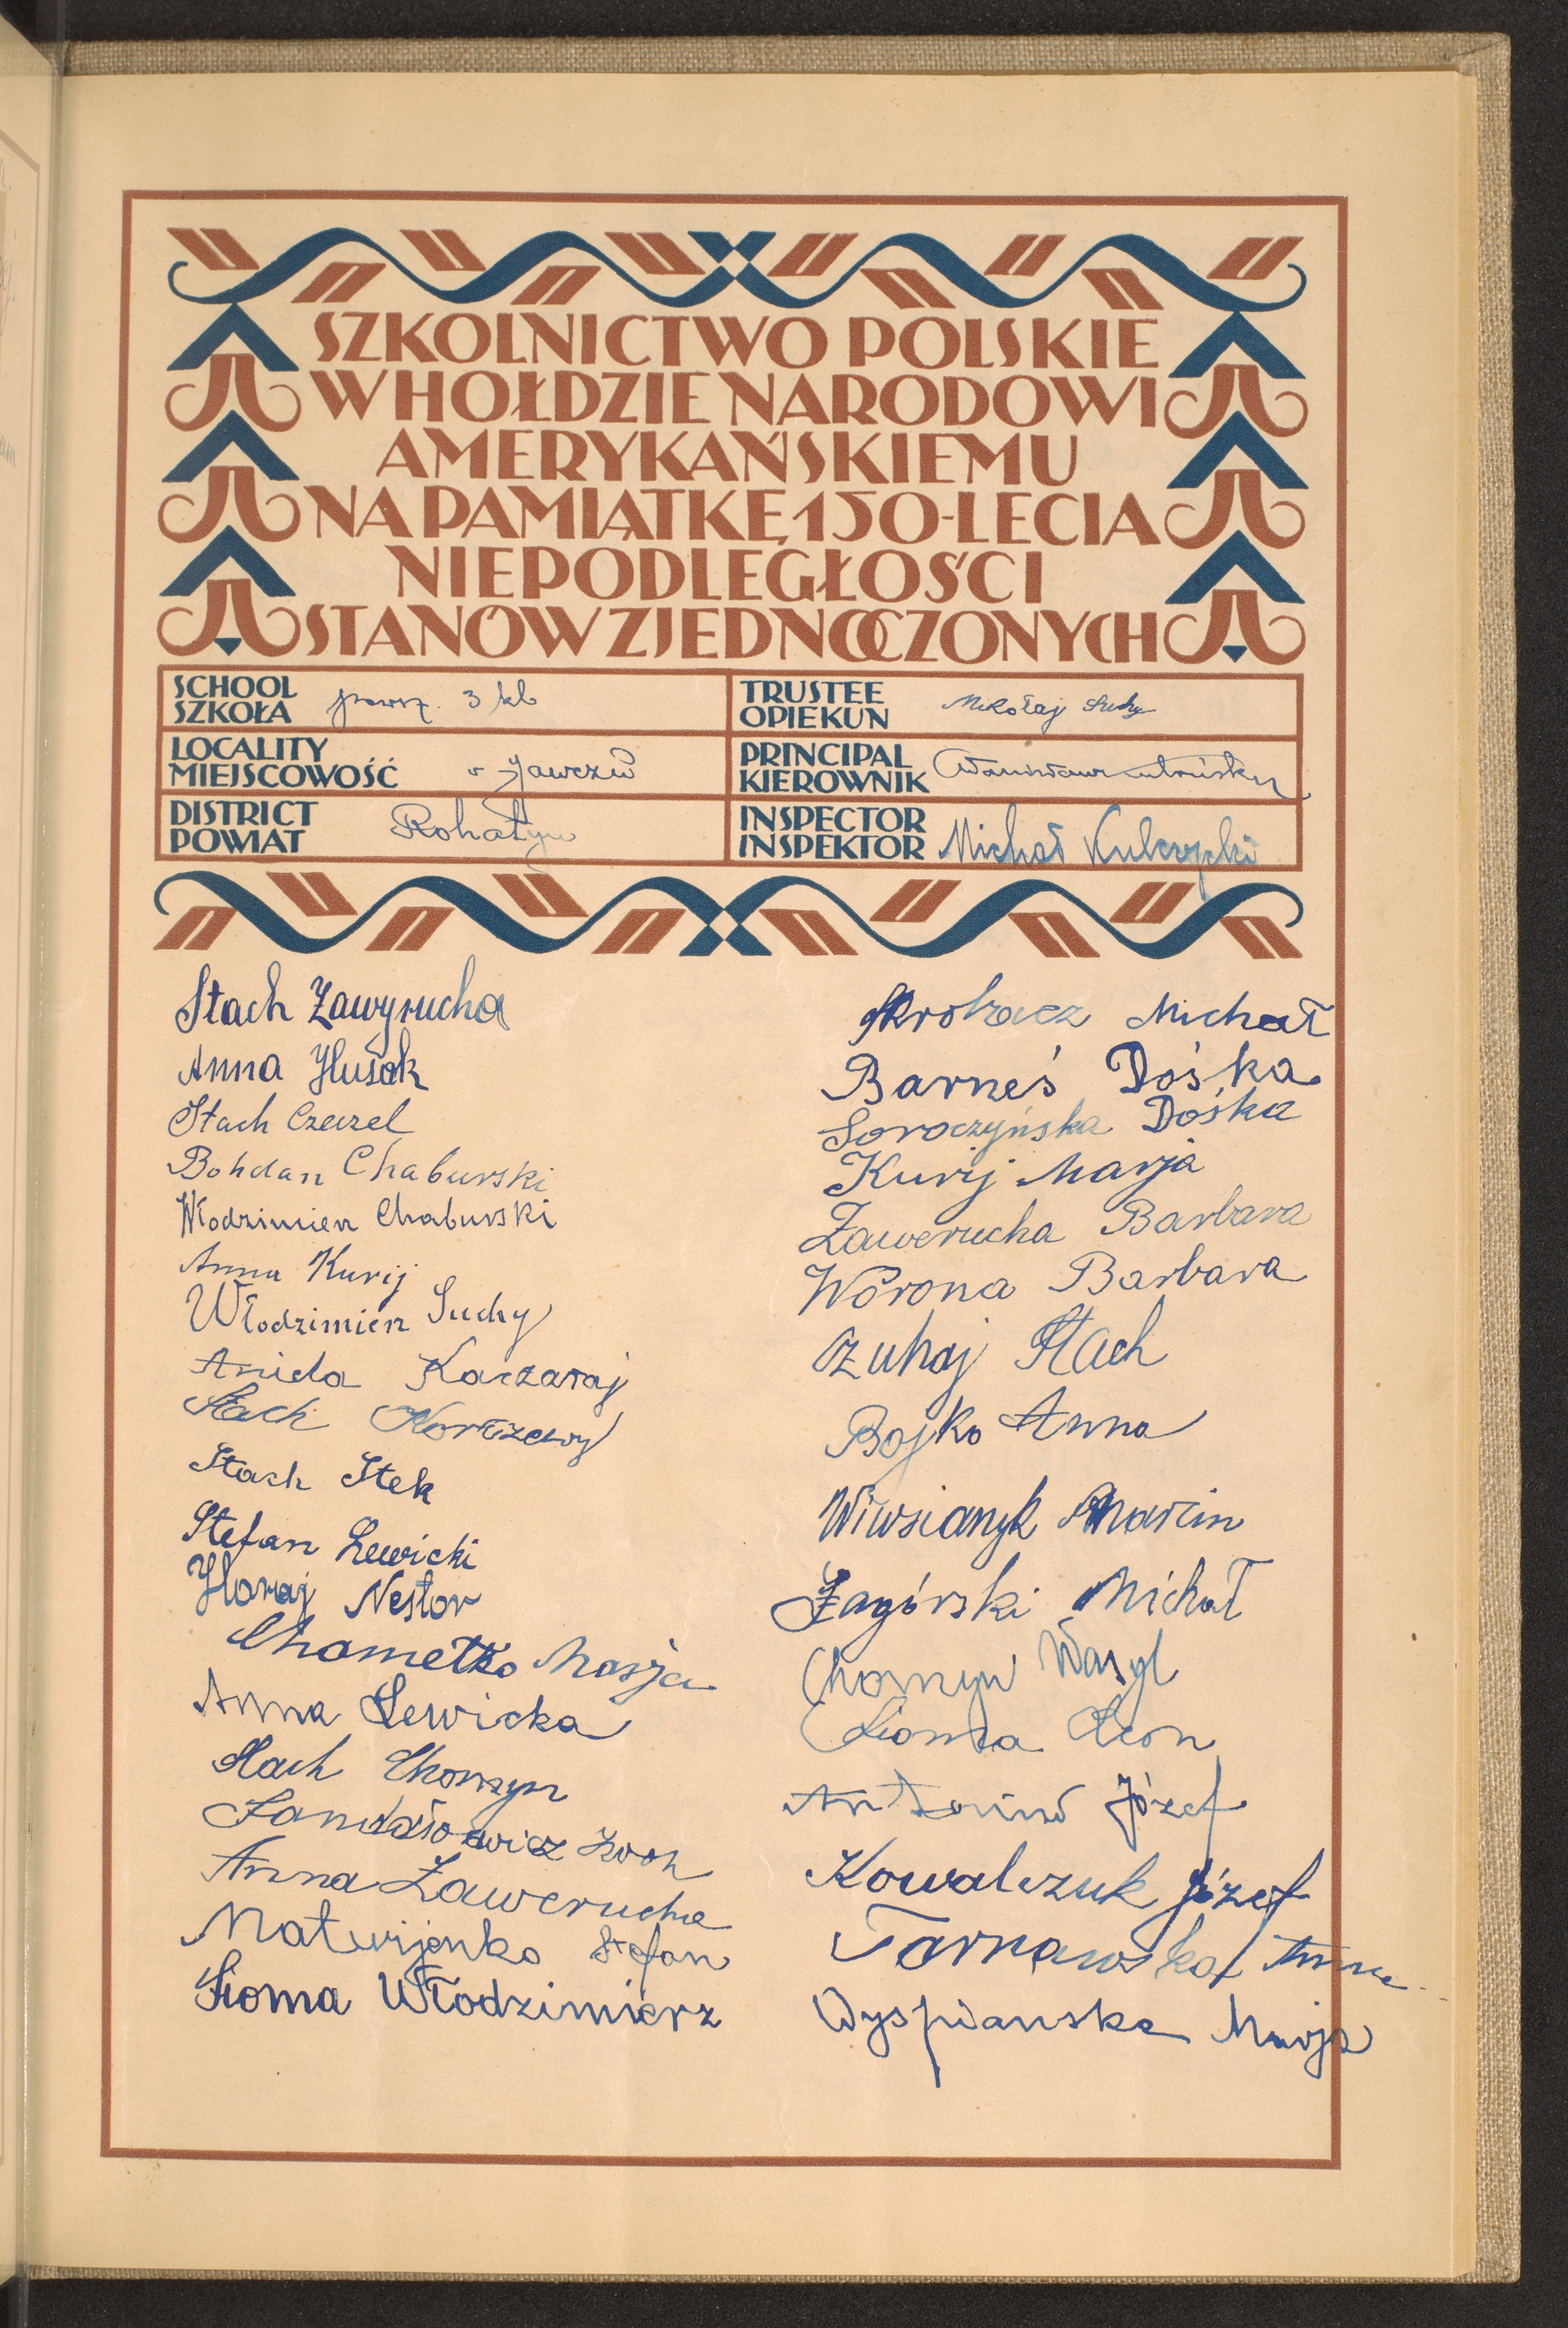 SZKOLNICTWO POLSKIE
W HOŁDZIE NARODOWI
AMERYKAŃSKIEMU
NA PAMIĄTKĘ 150-LECIA
NIEPODLEGŁOŚCI
STANÓW ZJEDNOCZONYCH
SCHOOL
SZKOŁA powsz. 3 kl
TRUSTEE
OPIEKUN Mikołaj Suchy
LOCALITY
MIEJSCOWOŚĆ w Jawczu
PRINCIPAL
KIEROWNIK
DISTRICT
POWIAT Rohatyn
INSPECTOR
INSPEKTOR Michał
Stach Zawyrucha
Anna Husak
Stach
Bohdan Chaburski
Włodzimierz Chaburski
Anna Kurij
Włodzimierz Suchy
Kaczaraj
Stach
Stach Stek
Stefan Lewicki
Horaj Nestor
Chometko Marja
Anna Lewicka
Stach Chomyn
Anna Zawerucha
Matwijenko Stefan
Sioma Włodzimierz
Skrobacz Michał
Barneś Dośka
Soroczyńska Dośka
Kurij Marja
Zawerucha Barbara
Worona Barbara
Czuhaj Stach
Bojko Anna
Wiwsianyk Marcin
Zagórski Michał
Chomyn Wasyl
Sioma Leon
Antoniw Józef
Kowalczuk Józef
Tarnawska Anna
Wyspianska Marja